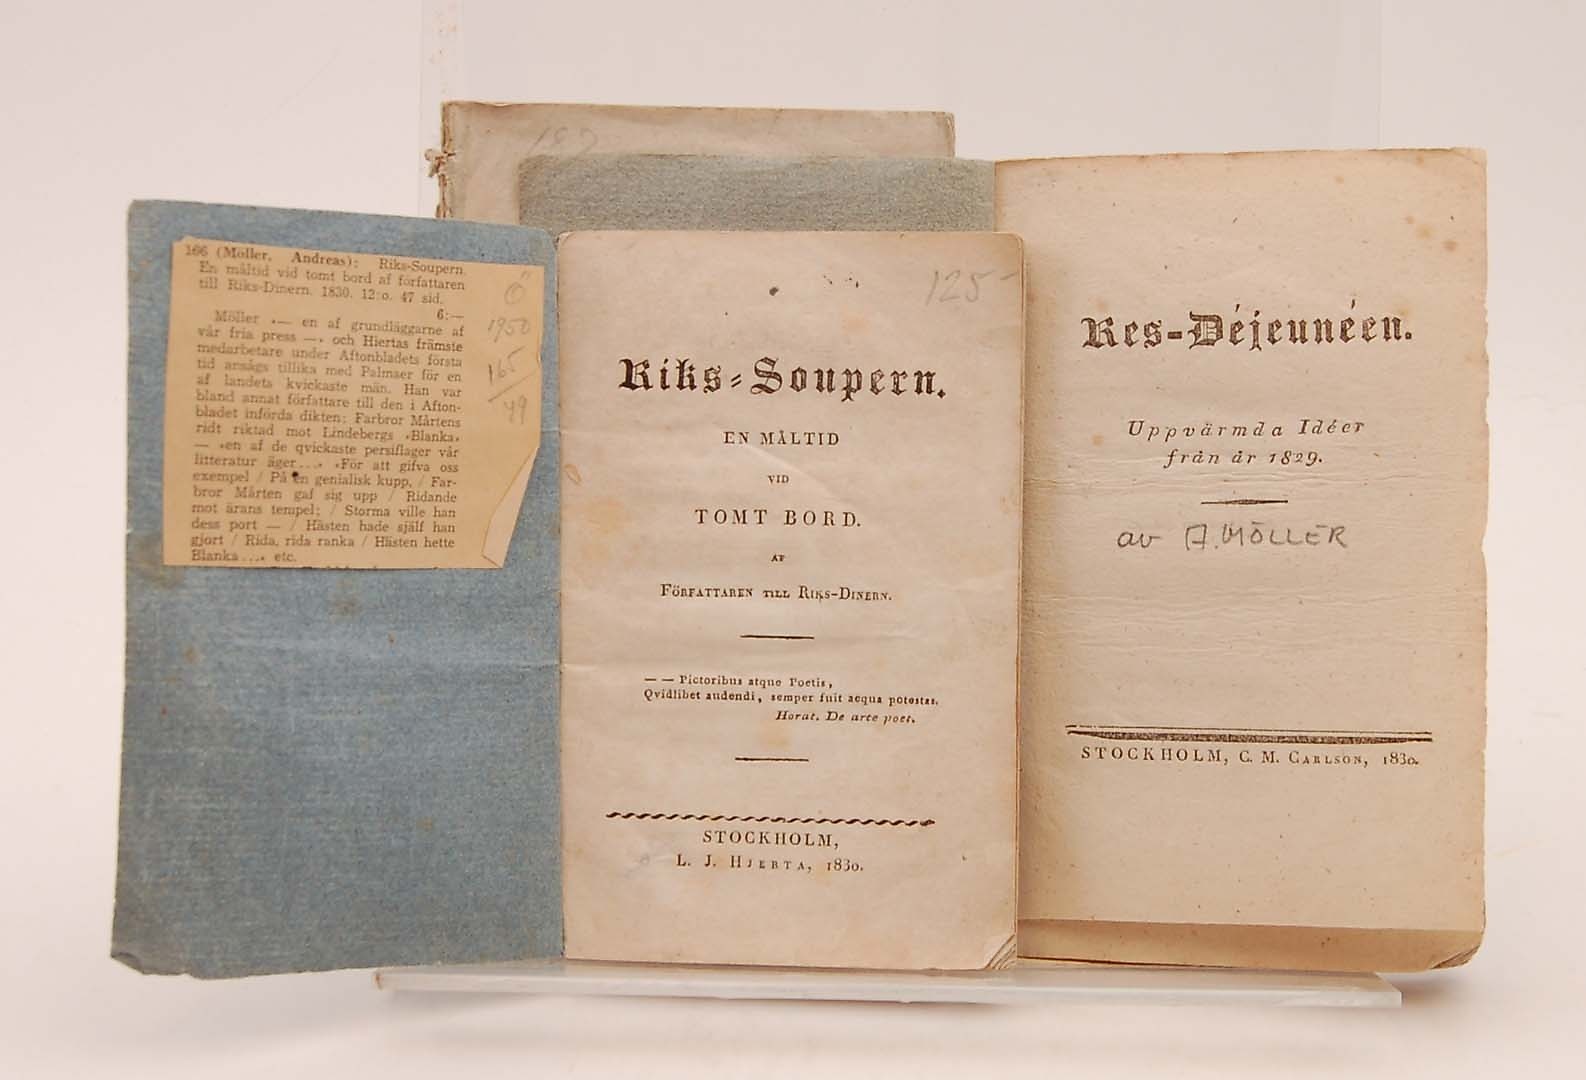 166 (Möller, Andreas): Riks-Soupern.
En måltid vid tomt bord af författaren
till Riks-Dinern. 1830. 12:o. 47 sid.
6:—
Möller »— en af grundläggarne af
vår fria press —» och Hiertas främste
medarbetare under Aftonbladets första
tid ansågs tillika med Palmaer för en
af landets kvickaste män. Han var
bland annat författare till den i Afton-
bladet införda dikten: Farbror Mårtens
ridt riktad mot Lindebergs »Blanka»
— »en af de qvickaste persiflager vår
litteratur äger...» »För att gifva oss
exempel / På en genialisk kupp, / Far-
bror Mårten gaf sig upp / Ridande
mot ärans tempel; / Storma ville han
dess port — / Hästen hade själf han
gjort / Rida, rida ranka / Hästen hette
Blanka...» etc.
Ö
1950
165
49
125-
Riks-Soupern.
EN MÅLTID
VID
TOMT BORD.
AF
FÖRFATTAREN TILL RIKS-DINERN.
— — Pictoribus atque Poetis,
Qvidlibet audendi, semper fuit aequa potestas.
Horat. De arte poet.
STOCKHOLM,
L. J. HJERTA, 1830.
Res-Déjeunéen.
Uppvärmda Idéer
från år 1829.
av A. MÖLLER
STOCKHOLM, C. M. CARLSON, 1830.